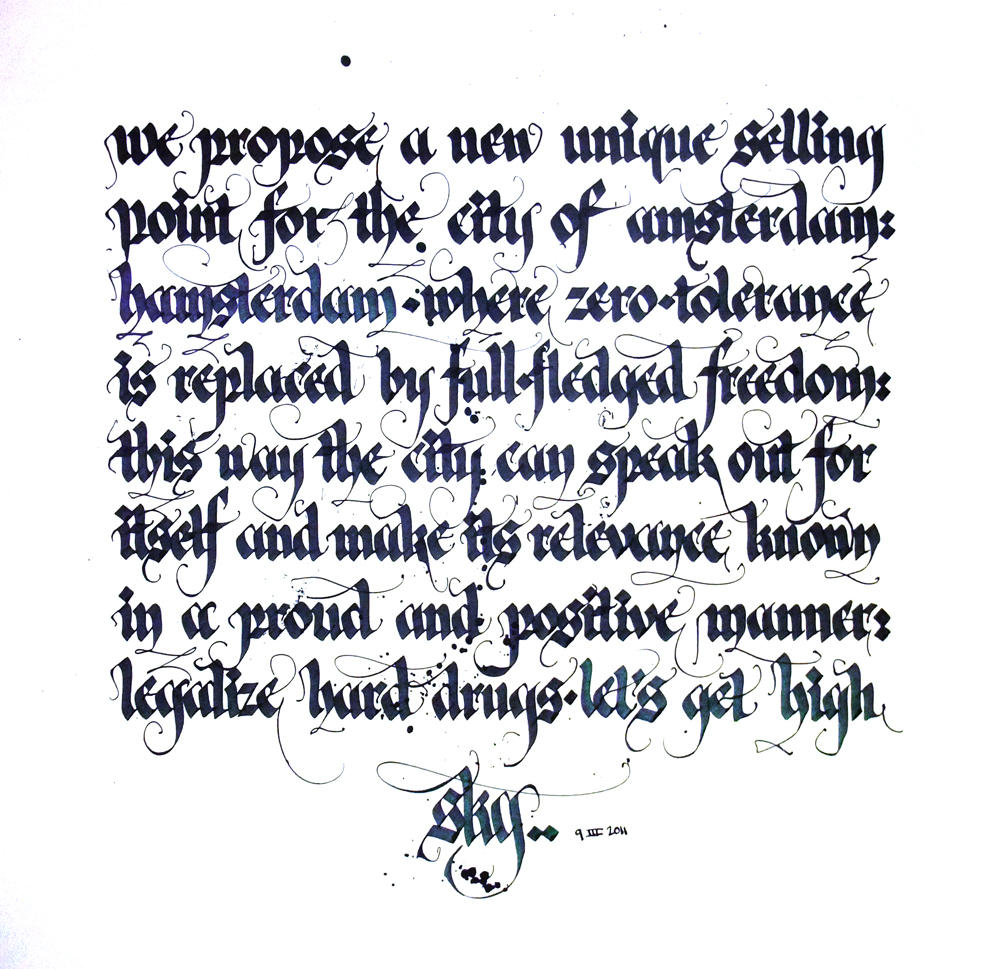 we propose a new unique selling
point for the city of amsterdam:
hamsterdam·where zero·tolerance
is replaced by full·fledged freedom:
this way the city can speak out for
itself and make its relevance known
in a proud and positive manner:
legalize hard drugs·let's get high
sky..
9 III 2011